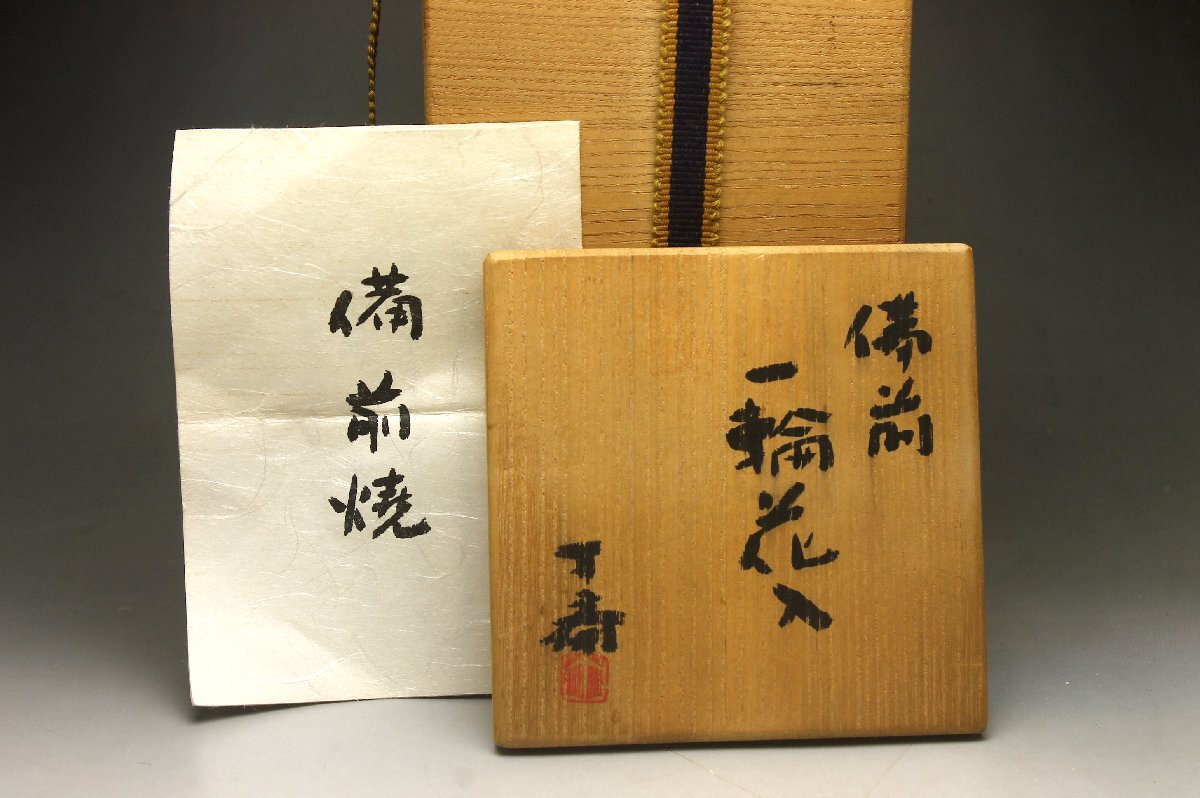 備前焼
備前
一輪花入